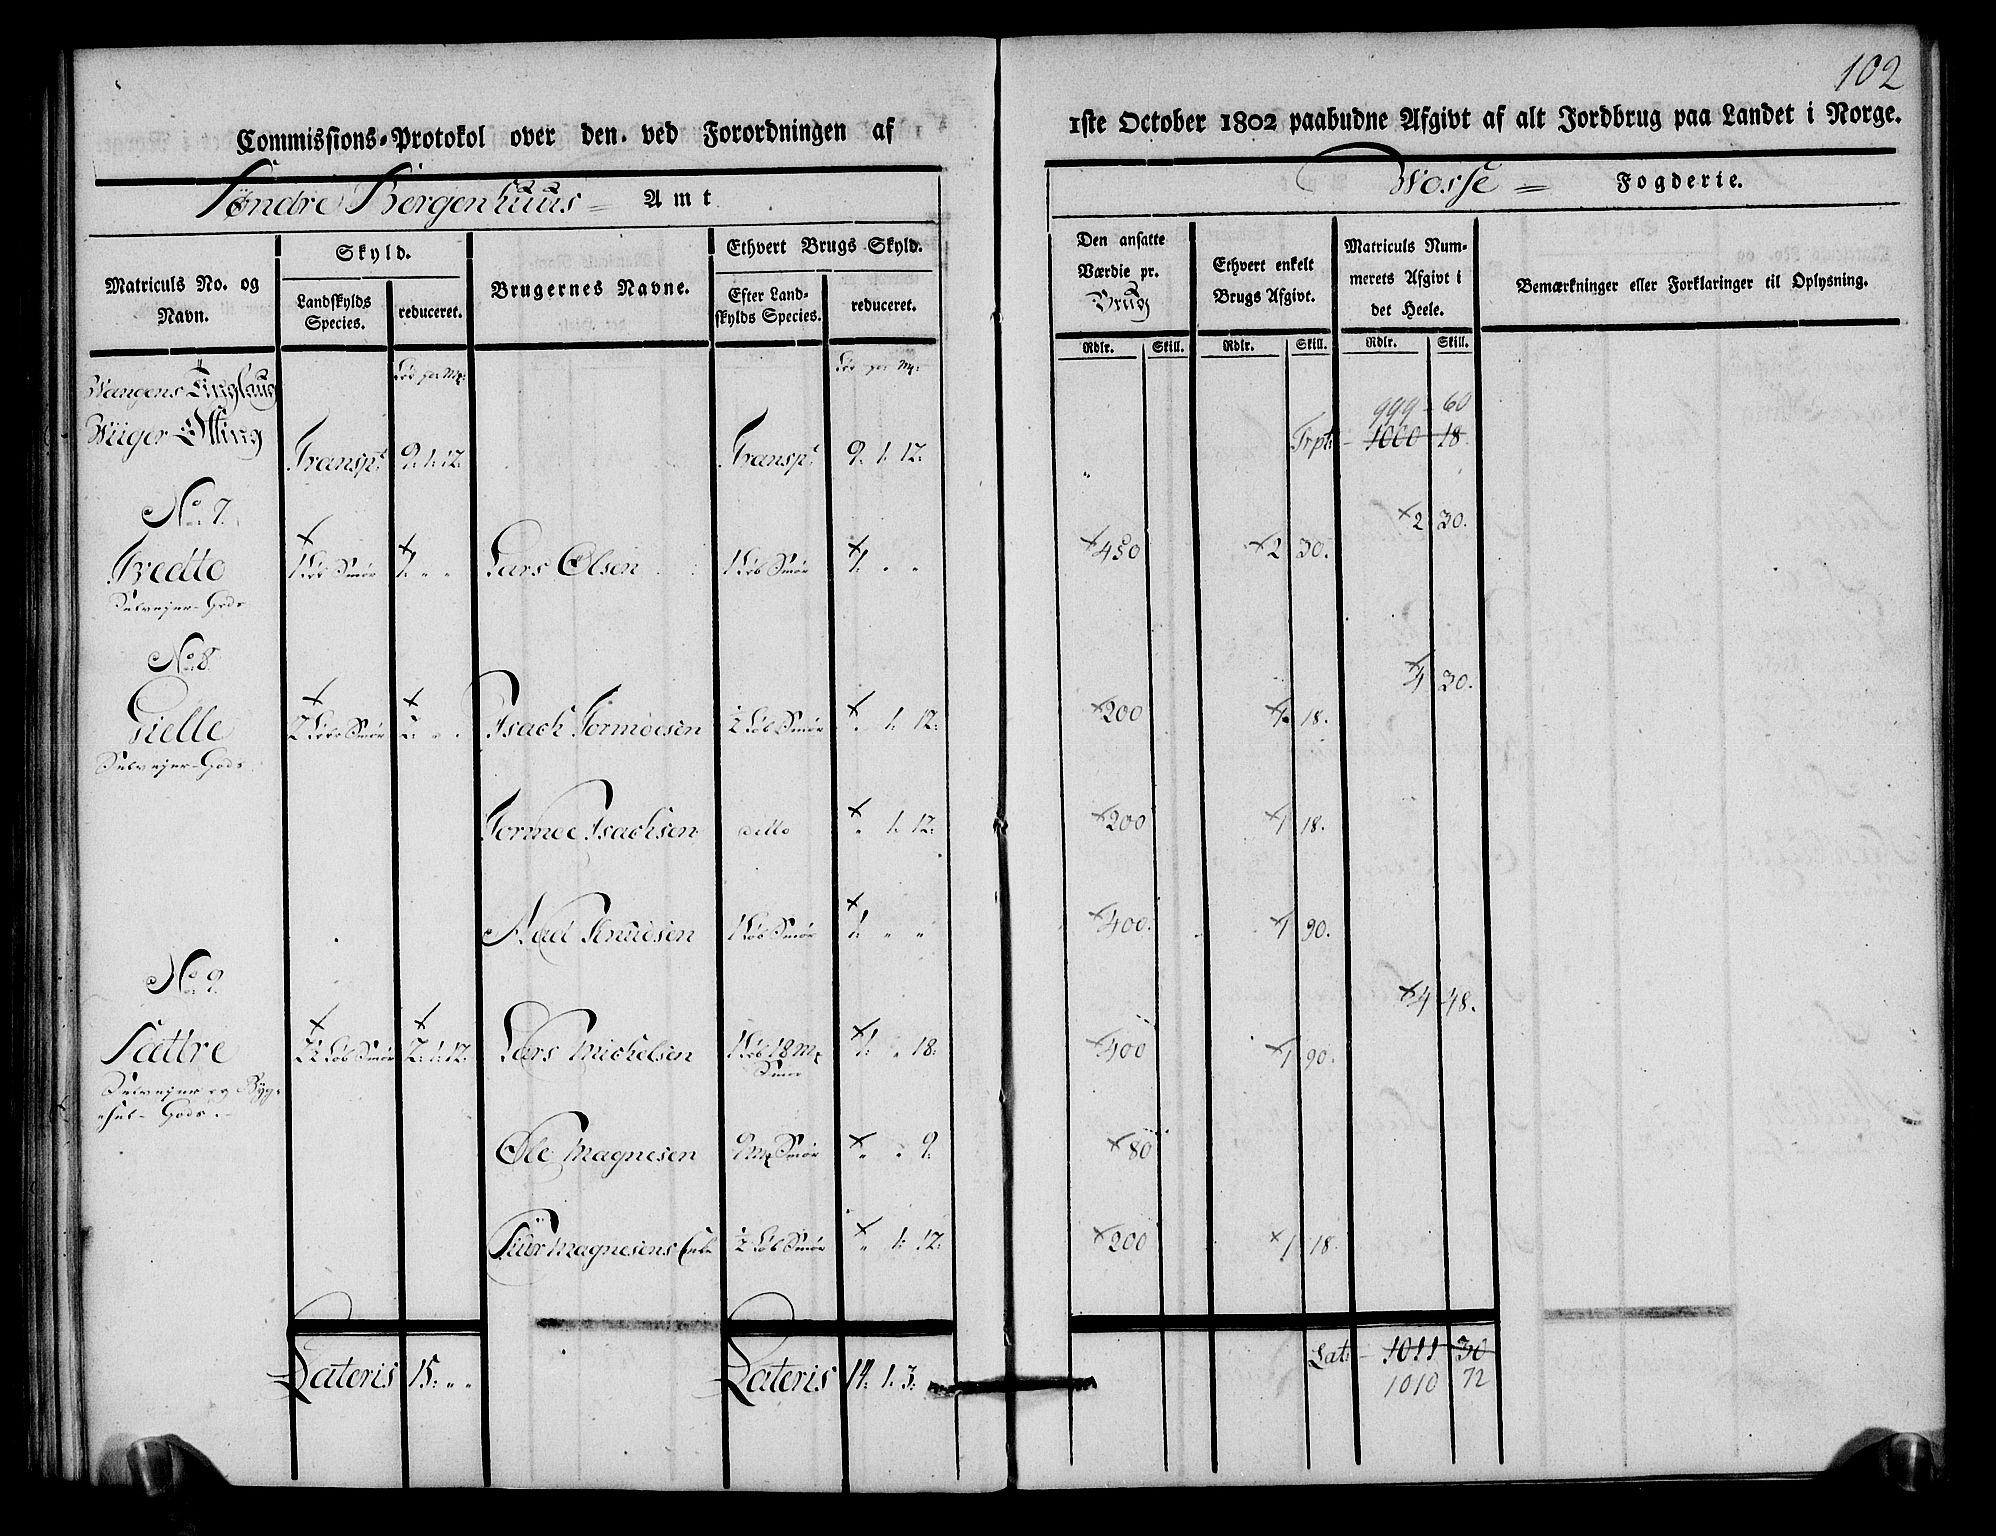 102
Commissions-Protokol over den ved Forordningen af 1ste October 1802 paabudne Afgivt af alt Jordbrug paa Landet i Norge.
Søndre Bergenhuus Amt
Wosse Fogderie.
Matriculs No. og Navn.
Skyld.
Landskylds Species.
reduceret.
Brugernes Navne.
Ethvert Brugs Skyld.
Efter Landskylds Species.
reduceret.
Den ansatte Værdie pr. Brug
Ethvert enkelt Brugs Afgivt.
Matriculs Nummerets Afgivt i det Heele.
Bemærkninger eller Forklaringer til Oplysning.
Rdlr. Skill. Rdlr. Skill. Rdlr. Skill.
Wangens Tinglaug
999 - 60
Transpt 9: 1: 12: Transpt 9: 1: 12: Trpt: - 1000 18.
No 7.
2 30.
Tredto 1 Løb Smør 1: " " Lars Olsen 1 Løb Smør 1: " " 450 2 30.
Selvejer-Gods
No 8
4 30.
Gielle 2 Løbe Smør 2: " " Isach Tormoesen ½ Løb Smør " 1: 12: 200 1 18.
Selvejer-Gods
Tormoe Isachsen ditto " 1: 12: 200 1 18.
Mad Knudsen 1 Løb Smør 1: " " 400. 1 90.
No 9.
4 48.
Sættre 2½ Løb Smør 2: 1: 12: Lars Michelsen 1 Løb 18 Mk Smør 1: " 18: 400 1 90.
Selvejer og Bygsel-Gods.
Ole Magnesen 9 Mk Smør " " 9: 80
Siur Magnesens Enke ½ Løb Smør " 1: 12: 200 1 18.
Lateris 15: " " Lateris 14: 1: 3: Lat: - 1011 30
1010 72